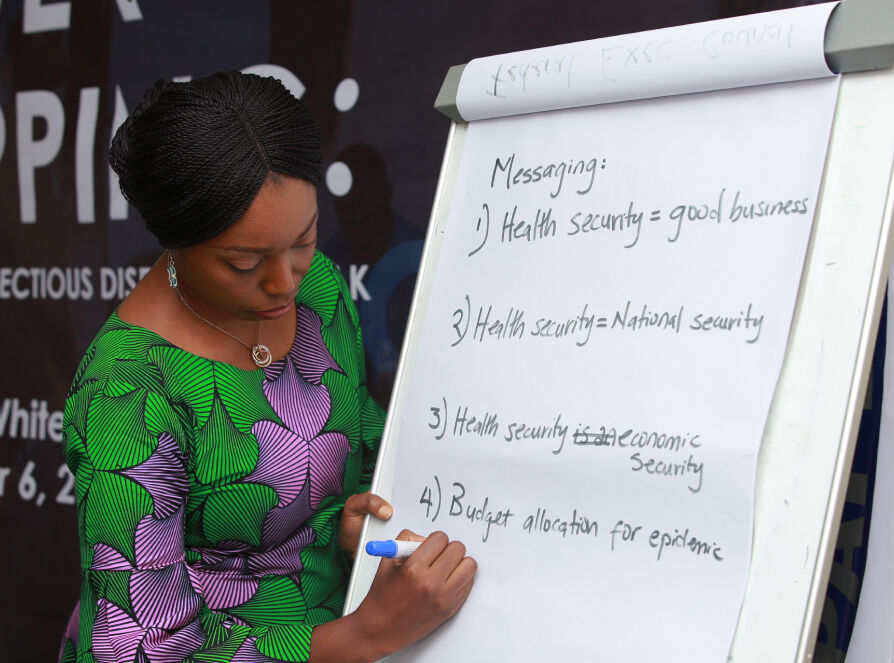 PPING:
ECTIOUS DISE K
White
r 6, 2
Federal Exec Council
Messaging:
1) Health security = good business
2) Health security = National security
3) Health security is an economic
security
4) Budget allocation for epidemic